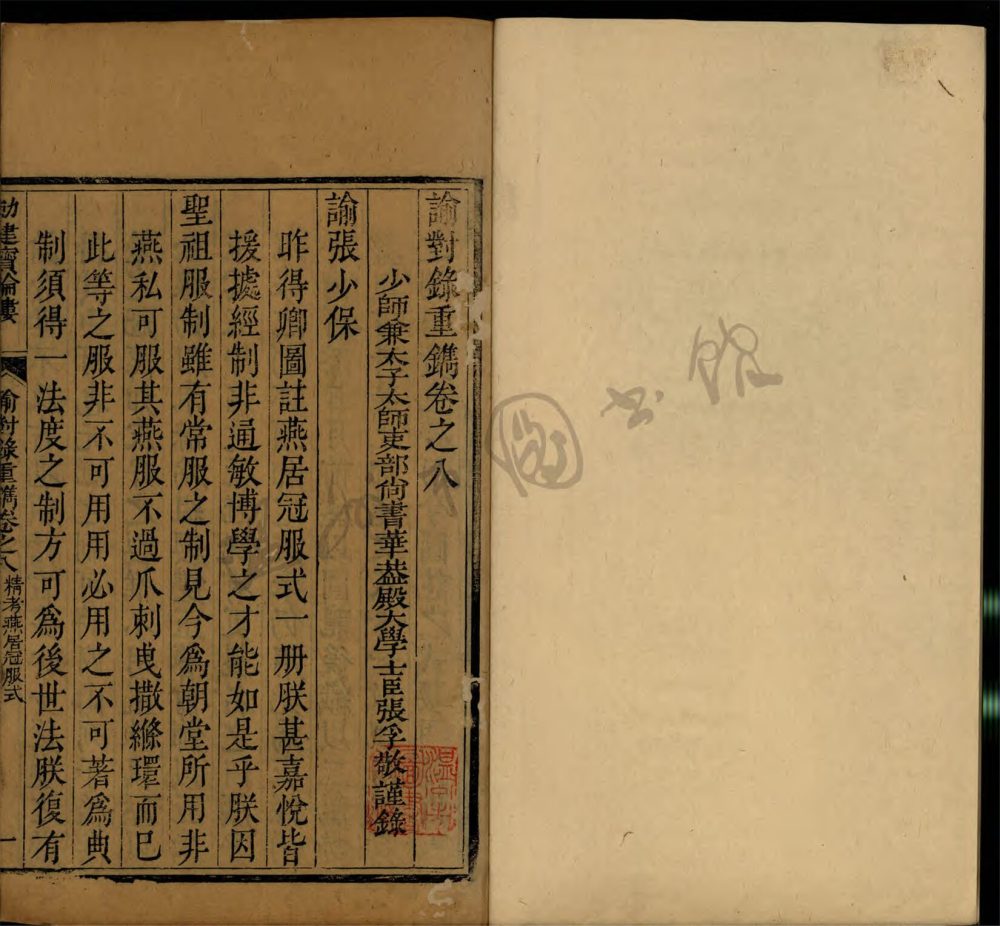 諭對錄重鐫卷之八
少師兼太子太師吏部尚書華葢殿大學士臣張孚敬謹錄
諭張少保
昨得卿圖註燕居冠服式一册朕甚嘉悅皆
援據經制非通敏博學之才能如是乎朕因
聖祖服制雖有常服之制見今爲朝堂所用非
燕私可服其燕服不過爪刺曵撒縧環而已
此等之服非不可用用必用之不可著爲典
制須得一法度之制方可爲後世法朕復有
勅建寶綸樓
諭對錄重鐫卷之八
精考燕居冠服式
一
書